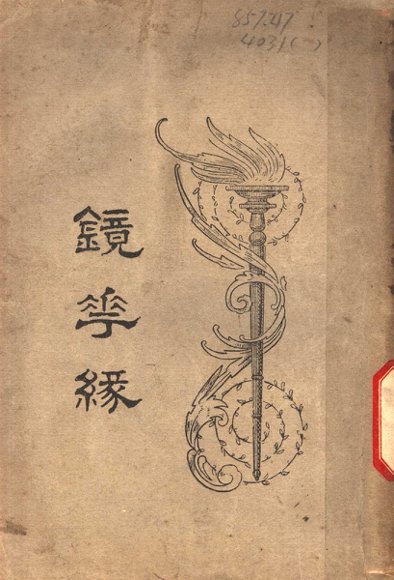 857.47
4031(一)
鏡花緣